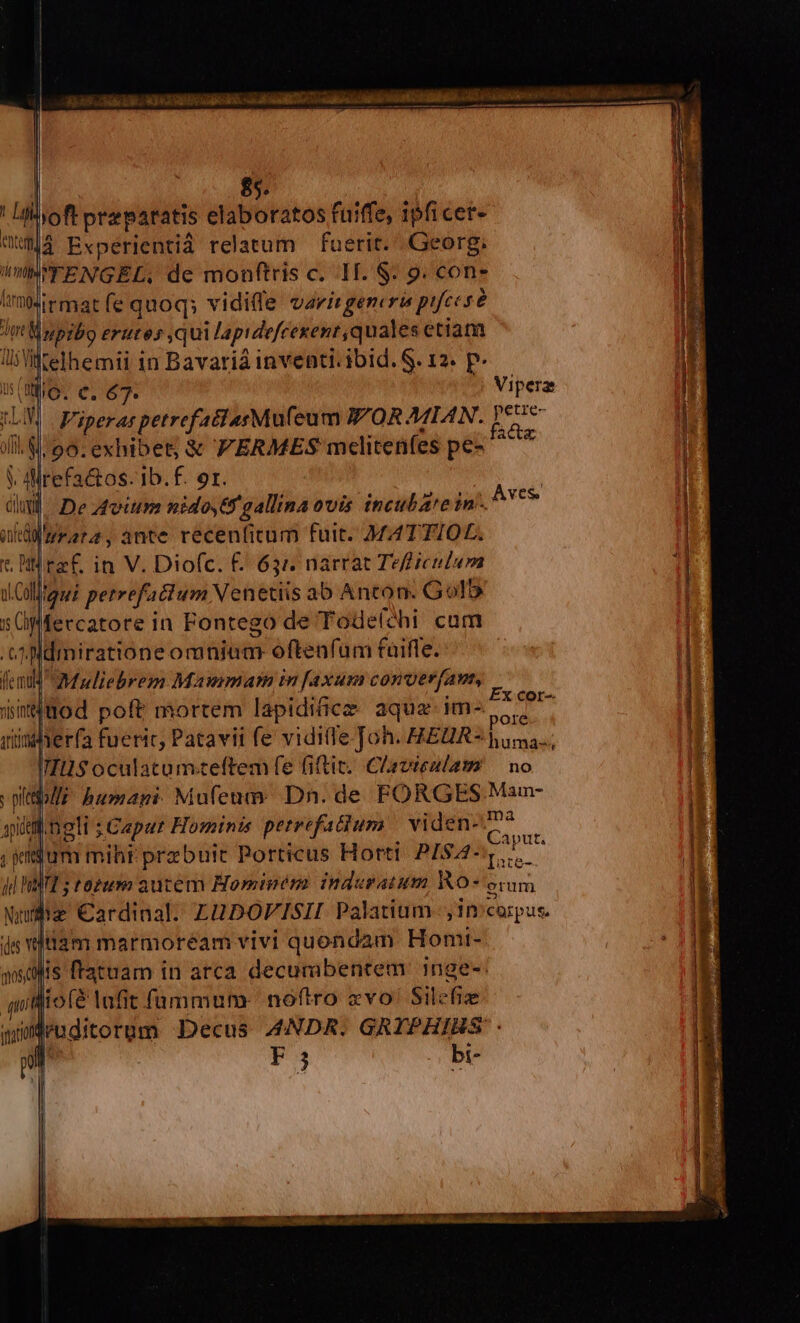 85.
oſt præparatis elaboratos fuiſſe, ipſi cer-
Experientiâ relatum fuerit. Georg.
WENGEL, de monſtris c. II. §. 9. con-
firmat ſe quoq; vidiſſe varii generis piſces è
erutos, qui lapideſcerent, quales etiam
in Bavariâ inventi. ibid. §. 12. p.
c. 67.
Viperæ
Viperas petrefactas Muſeum WORMIAN.
petre-
factæ
90. exhibet, & VERMES melitenſes pe-
refactos. ib. f. 91.
De Avium nido, & gallina ovis incubare in-
Aves
ante recenſitum fuit. MATTIOL.
præf. in V. Dioſc. f. 631. narrat Teſticulum
qui petrefactum Venetiis ab Anton. Golb
Mercatore in Fontego de Todeſchi cum
admiratione omnium oſtenſum fuiſſe.
Muliebrem Mammam in ſaxum converſam,
Ex cor-
quod poſt mortem lapidificæ aquæ im-
pore
merſa fuerit, Patavii ſe vidiſſe Joh. HEUR-
huma-
NIUS oculatum teſtem ſe ſiſtit. Claviculam
no
humani Muſeum Dn. de FORGES
Mam-
Caput Hominis petrefactum viden-
ma
Caput.
dum mihi præbuit Porticus Horti PISA-
Inte-
totum autem Hominem induratum Ro-
grum
Cardinal. LUDOVISII Palatium, in
corpus.
quam marmoream vivi quondam Homi-
nis ſtatuam in arca decumbentem inge-
luſit ſummum noſtro ævo Sileſiæ
Eruditorum Decus ANDR. GRYPHIUS.
F 3 bi-